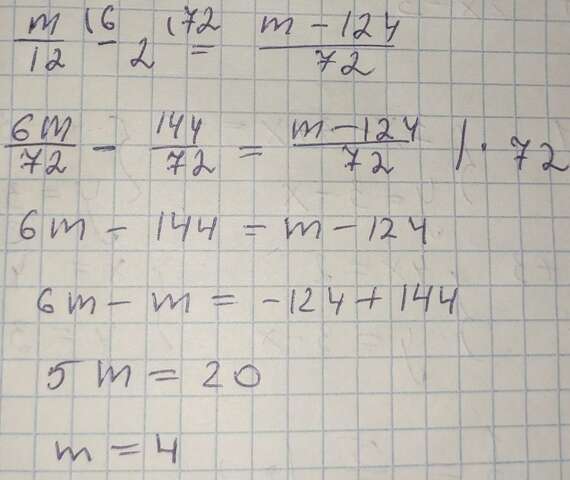 m/12 (6 - 2 (72 = (m - 124)/72
6m/72 - 144/72 = (m - 124)/72 / · 72
6m - 144 = m - 124
6m - m = -124 + 144
5m = 20
m = 4